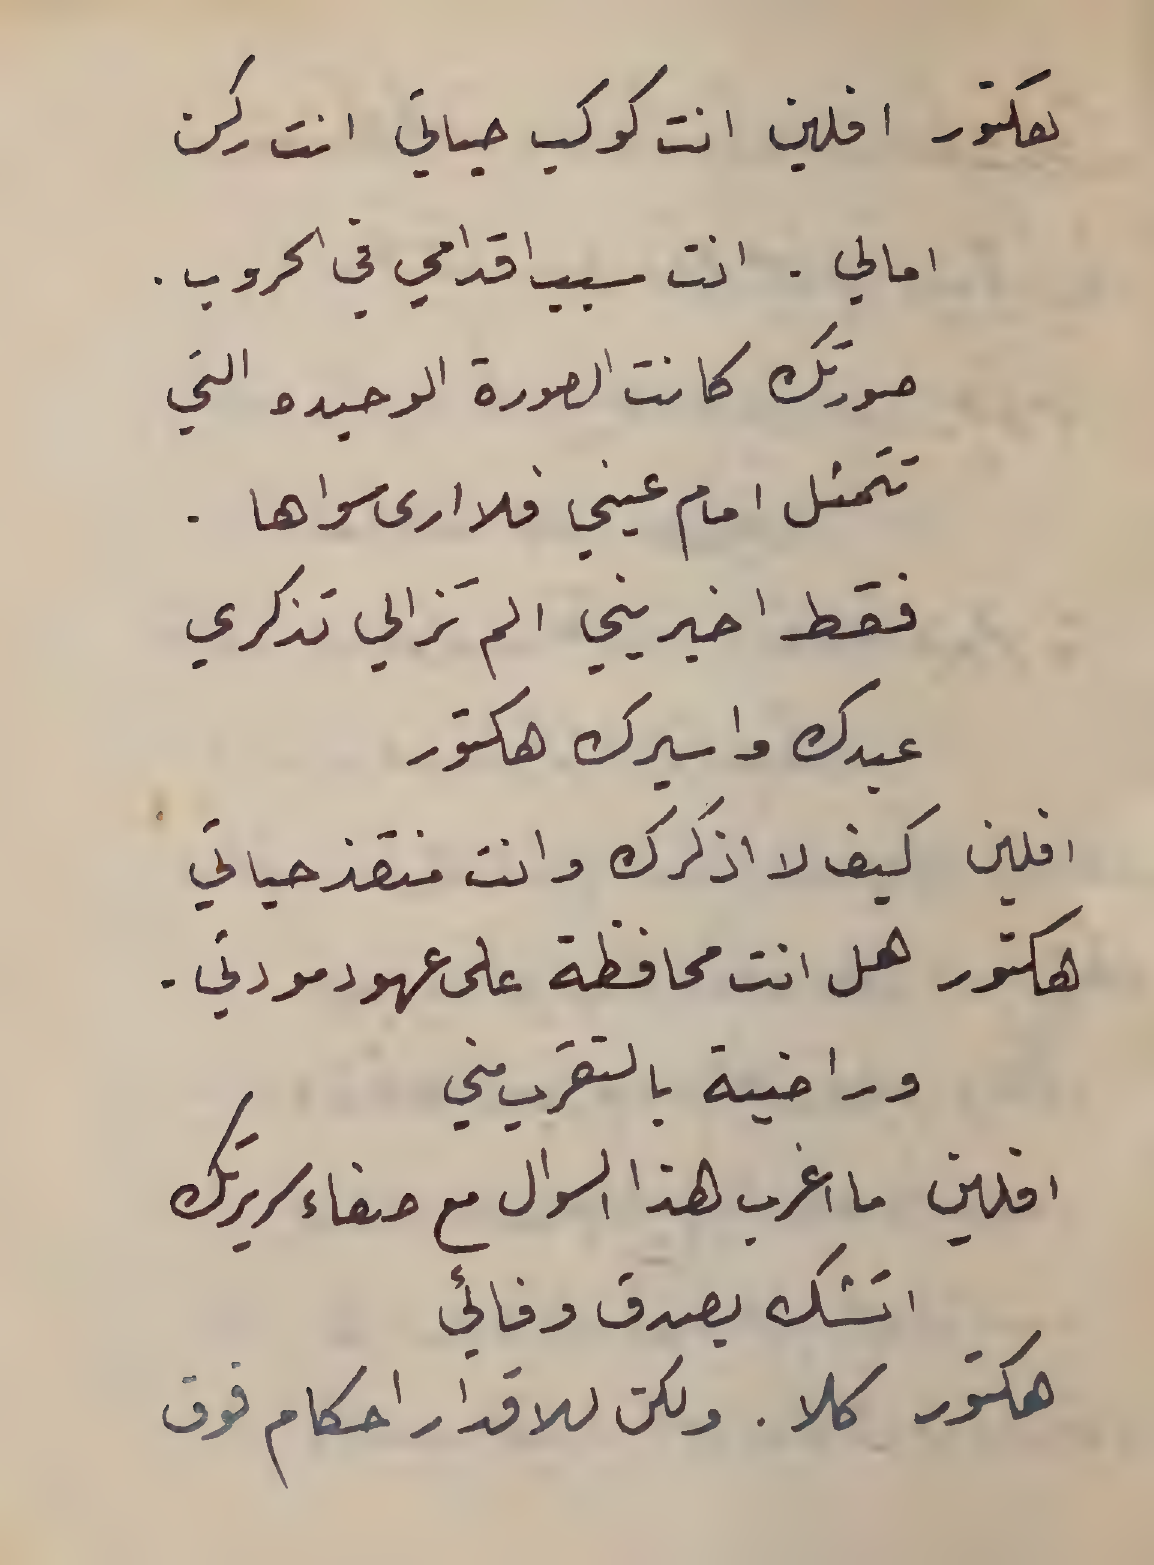 هكتور افلين انت كوكب حياتي انت ركن
امالي . انت سبب اقدامي في الحروب .
صورتك كانت الصورة الوحيده التي
تتمثل امام عيني فلا ارى سواها .
فقط اخبريني الم تزالي تذكري
عبدك واسيرك هكتور
افلين كيف لا اذكرك وانت منقذ حياتي
هكتور هل انت محافظة على عهود مودتي .
وراضية بالتقرب مني
افلين ما اغرب هذا السوال مع صفاء سريرتك
اتشك بصدق وفائي
هكتور كلا . ولكن للاقدار احكام فوق